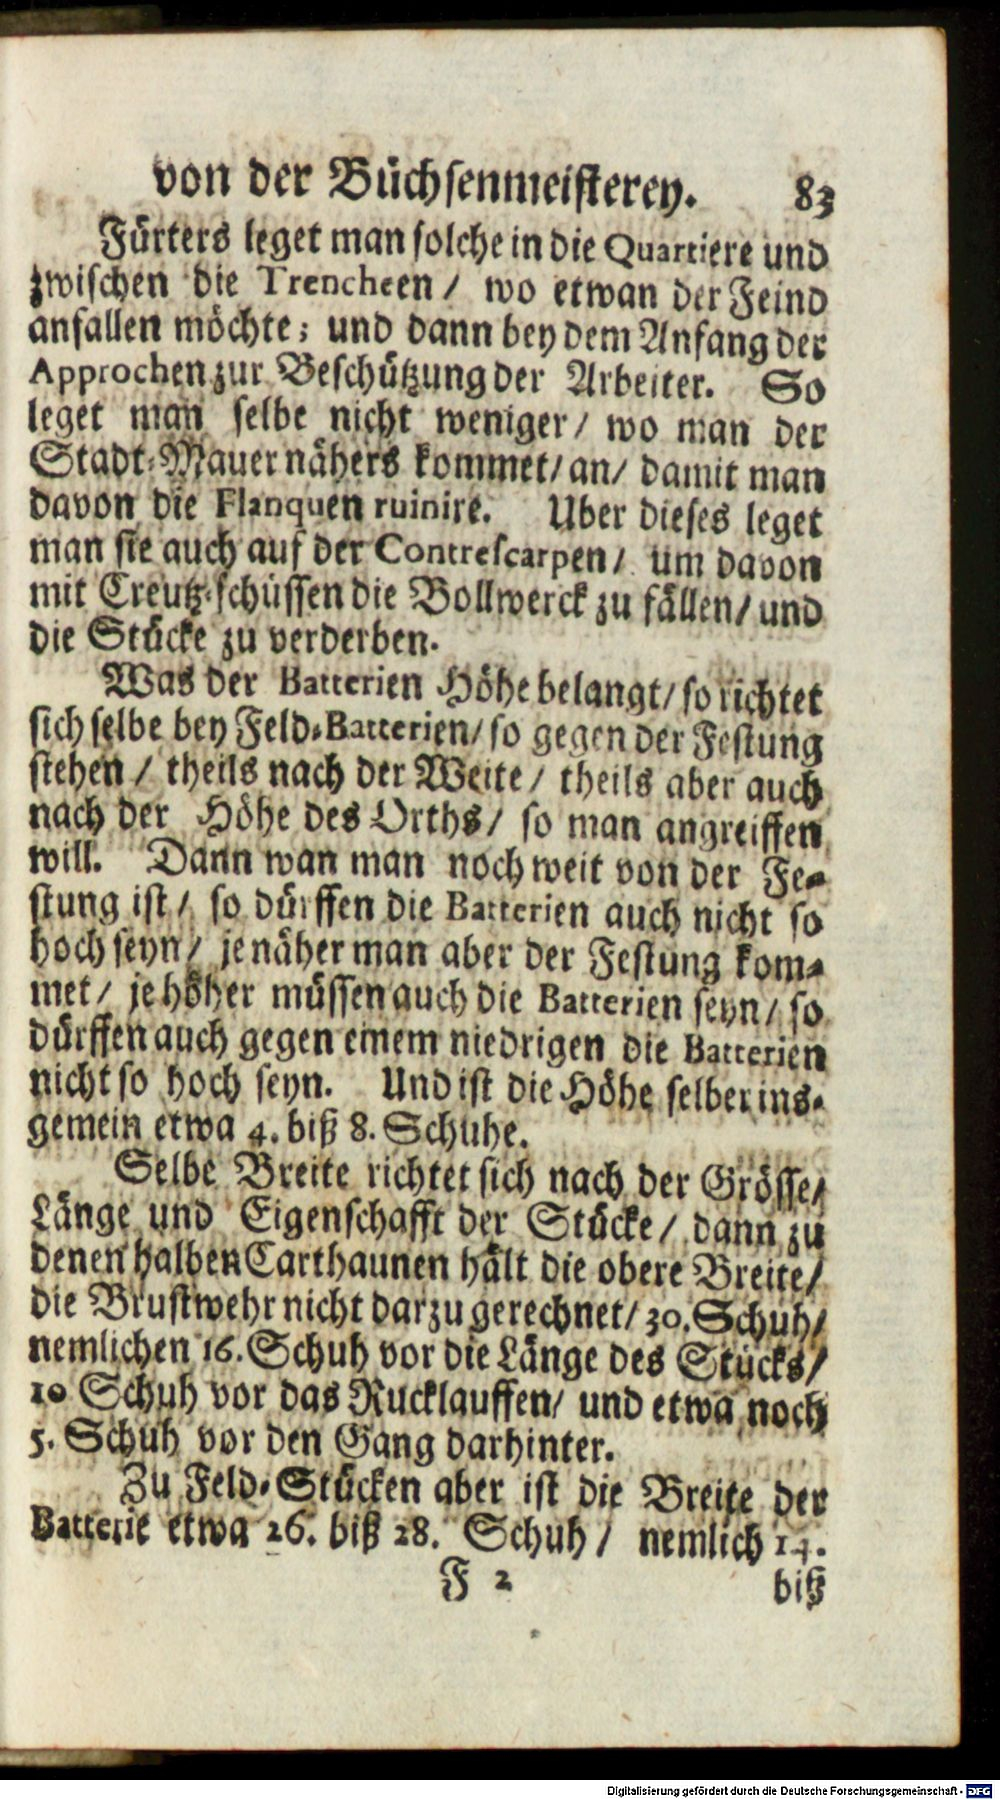 von der Büchsenmeisterey. 83
Fürters leget man solche in die Quartiere und
zwischen die Trencheen / wo etwan der Feind
anfallen möchte; und dann bey dem Anfang der
Approchen zur Beschützung der Arbeiter. So
leget man selbe nicht weniger / wo man der
Stadt-Mauer nähers kommet / an / damit man
davon die Flanquen ruinire. Uber dieses leget
man sie auch auf der Contrescarpen / um davon
mit Creutz-schüssen die Bollwerck zu fällen / und
die Stücke zu verderben.
Was der Batterien Höhe belangt / so richtet
sich selbe bey Feld-Batterien / so gegen der Festung
stehen / theils nach der Weite / theils aber auch
nach der Höhe des Orths / so man angreiffen
will. Dann wan man noch weit von der Fe-
stung ist / so dürffen die Batterien auch nicht so
hoch seyn / je näher man aber der Festung kom-
met / je höher müssen auch die Batterien seyn / so
dürffen auch gegen einem niedrigen die Batterien
nicht so hoch seyn. Und ist die Höhe selber ins-
gemein etwa 4. biß 8. Schuhe.
Selbe Breite richtet sich nach der Grösse /
Länge und Eigenschafft der Stücke / dann zu
denen halben Carthaunen hält die obere Breite /
die Brustwehr nicht darzu gerechnet / 30. Schuh /
nemlichen 16. Schuh vor die Länge des Stücks /
10 Schuh vor das Rucklauffen / und etwa noch
5. Schuh vor den Gang darhinter.
Zu Feld-Stücken aber ist die Breite der
Batterie etwa 26. biß 28. Schuh / nemlich 14.
F 2 biß
Digitalisierung gefördert durch die Deutsche Forschungsgemeinschaft - DFG